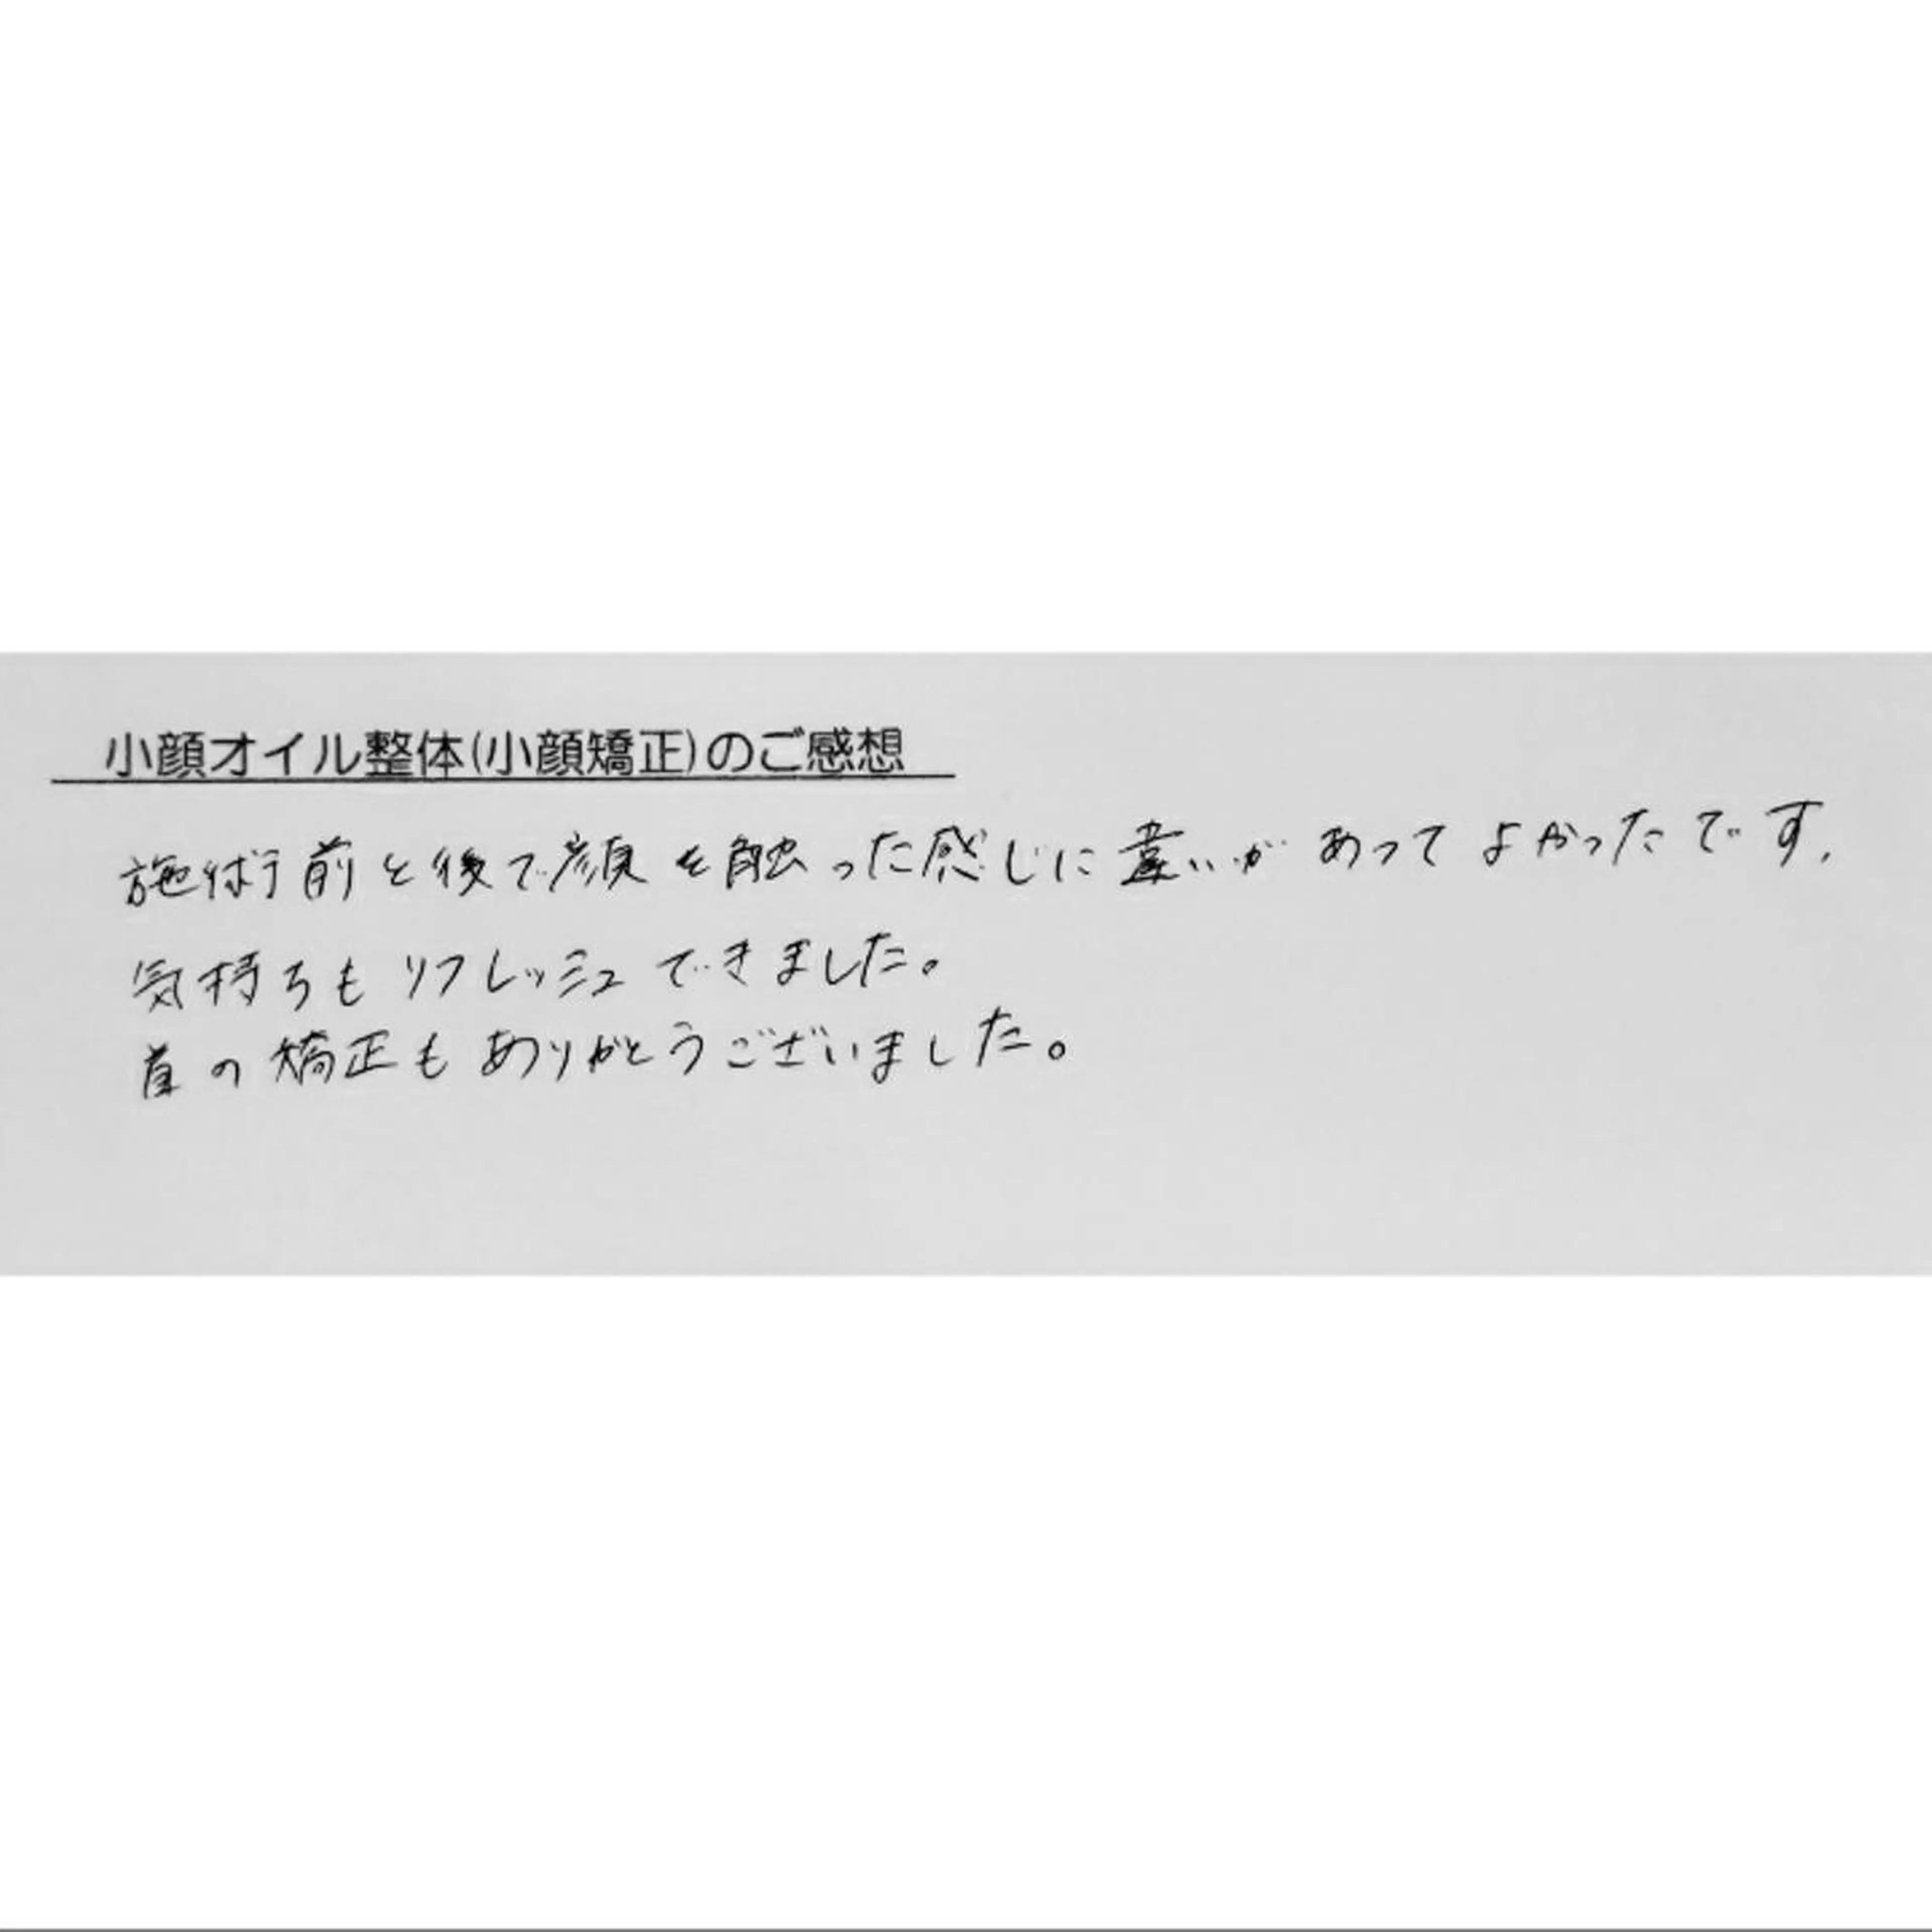 小顔オイル整体(小顔矯正)のご感想
施術前と後で顔を触った感じに違いがあってよかったです.
気持ちもリフレッシュできました。
首の矯正もありがとうございました。